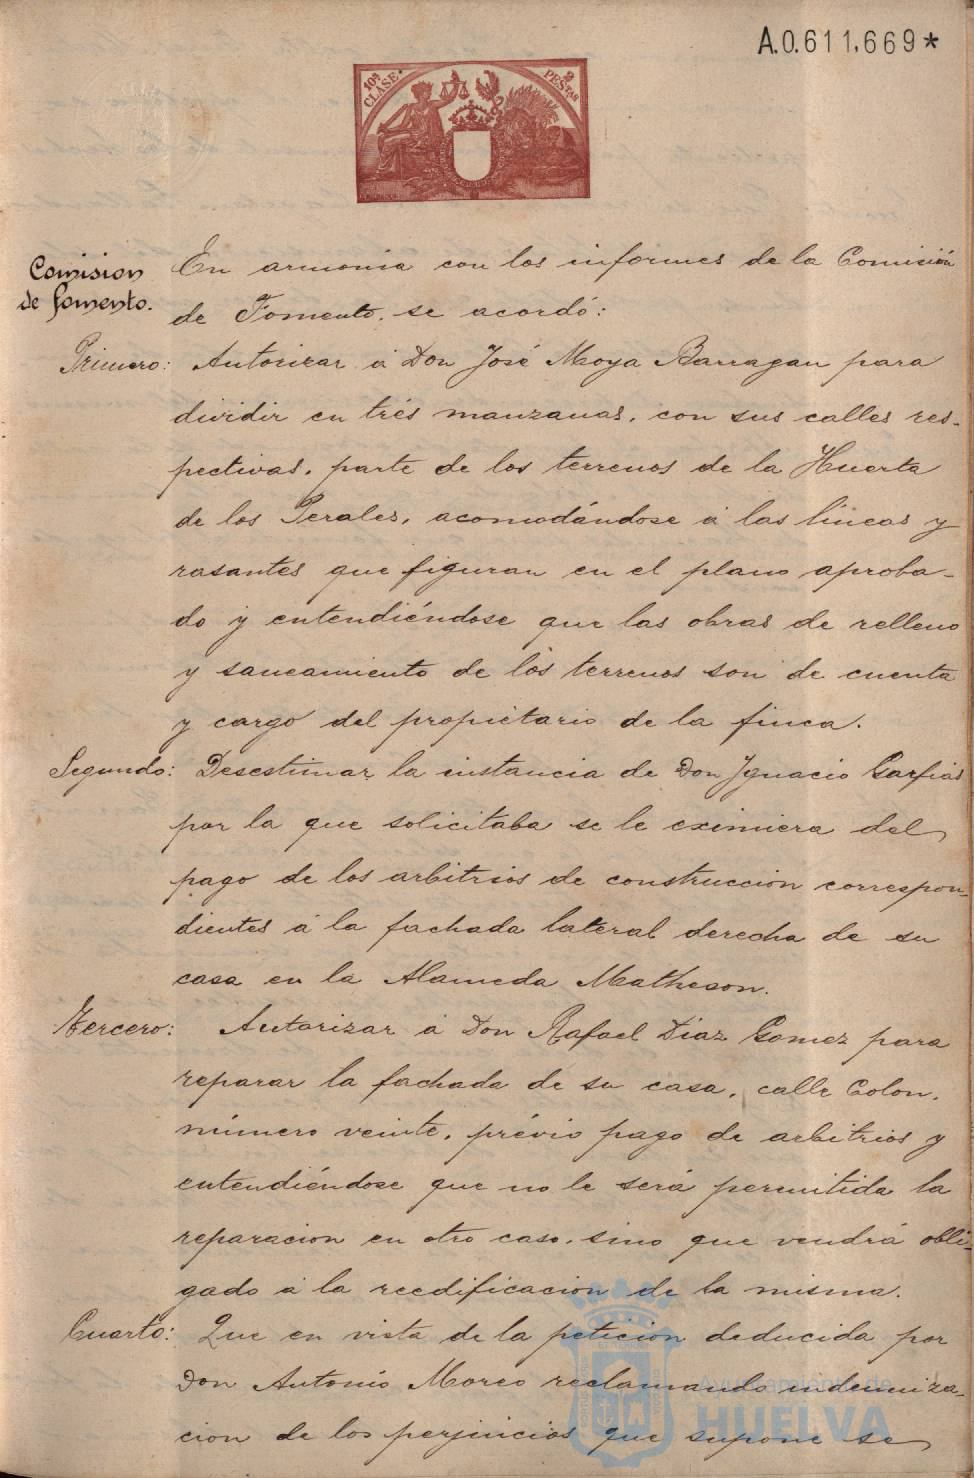 A.0.611.669*
10ª CLASE
2 PESETAS
Comision
de fomento.
En armonia con los informes de la Comisión
de Fomento, se acordó:
Primero: Autorizar á Don José Moya Barragan para
dividir en trés manzanas, con sus calles res-
pectivas, parte de los terrenos de la Huerta
de los Perales, acomodándose á las líneas y
rasantes que figuran en el plano aproba-
do y entendiéndose que las obras de relleno
y saneamiento de los terrenos son de cuenta
y cargo del propietario de la finca.
Segundo: Desestimar la instancia de Don Ignacio Garfias
por la que solicitaba se le eximiera del
pago de los arbitrios de construccion correspon-
dientes á la fachada lateral derecha de su
casa en la Alameda Matheson.
Tercero: Autorizar á Don Rafael Diaz Gomez para
reparar la fachada de su casa, calle Colon,
número veinte, prévio pago de arbitrios y
entendiéndose que no le será permitida la
reparacion en otro caso, sino que vendrá obli-
gado á la reedificacion de la misma.
Cuarto: Que en vista de la peticion deducida por
Don Antonio Moreo reclamando indemniza-
cion de los perjuicios que supone se
Ayuntamiento de
HUELVA